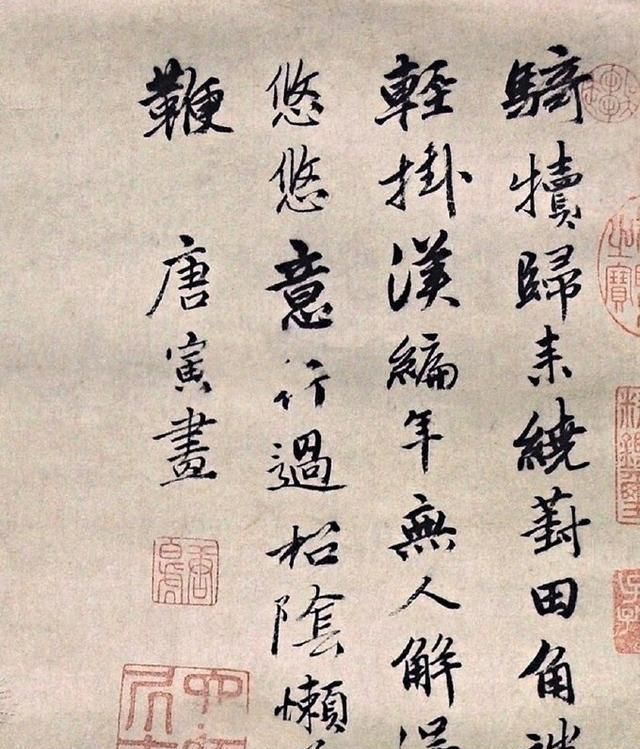 騎犢歸來繞葑田角
輕掛漢編年無人解
悠悠意行過松陰懶
鞭
唐寅畫